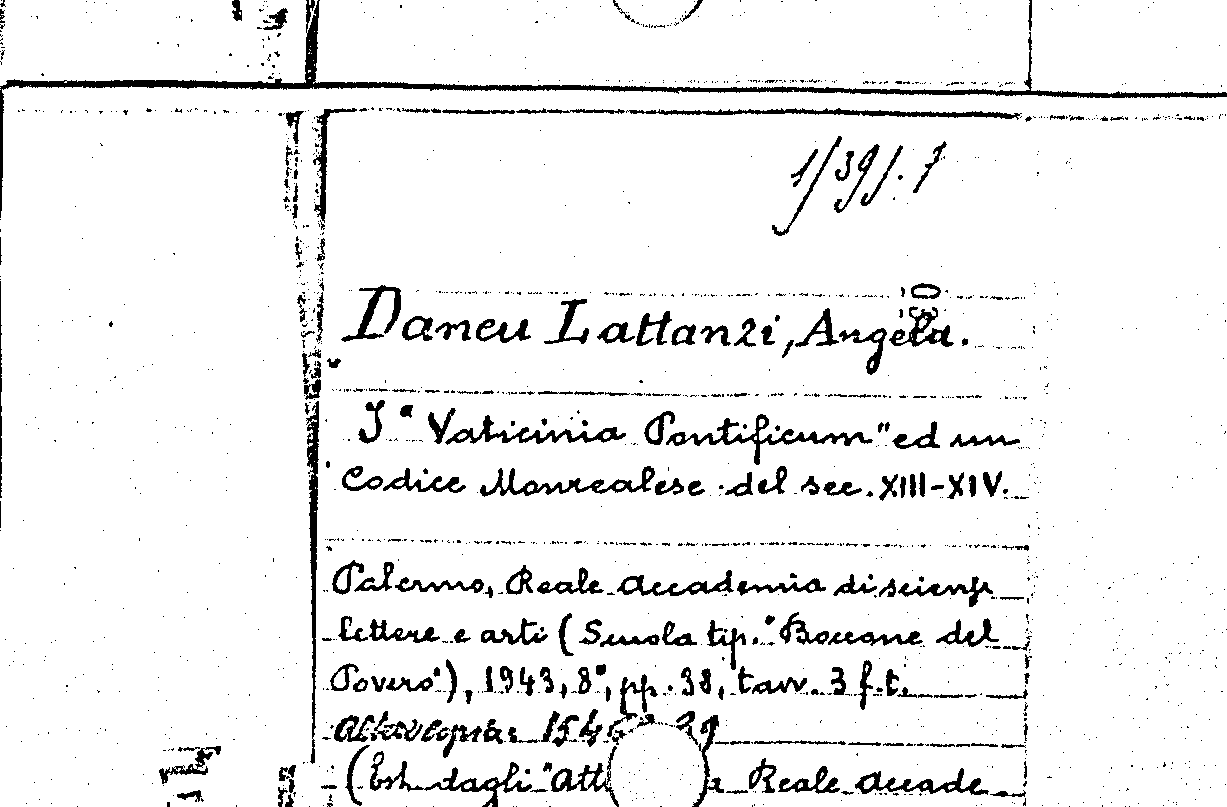 1/39/.7
Daneu Lattanzi, Angela.
I "Vaticinia Pontificum" ed un
Codice Monrealese del sec. XIII-XIV.
Palermo, Reale Accademia di scienze
lettere e arti (Scuola tip. "Boccone del
Povero"), 1943, 8°, pp. 38, tav. 3 f.t.
Altra copia:
(Estr. dagli "Att Reale Accade